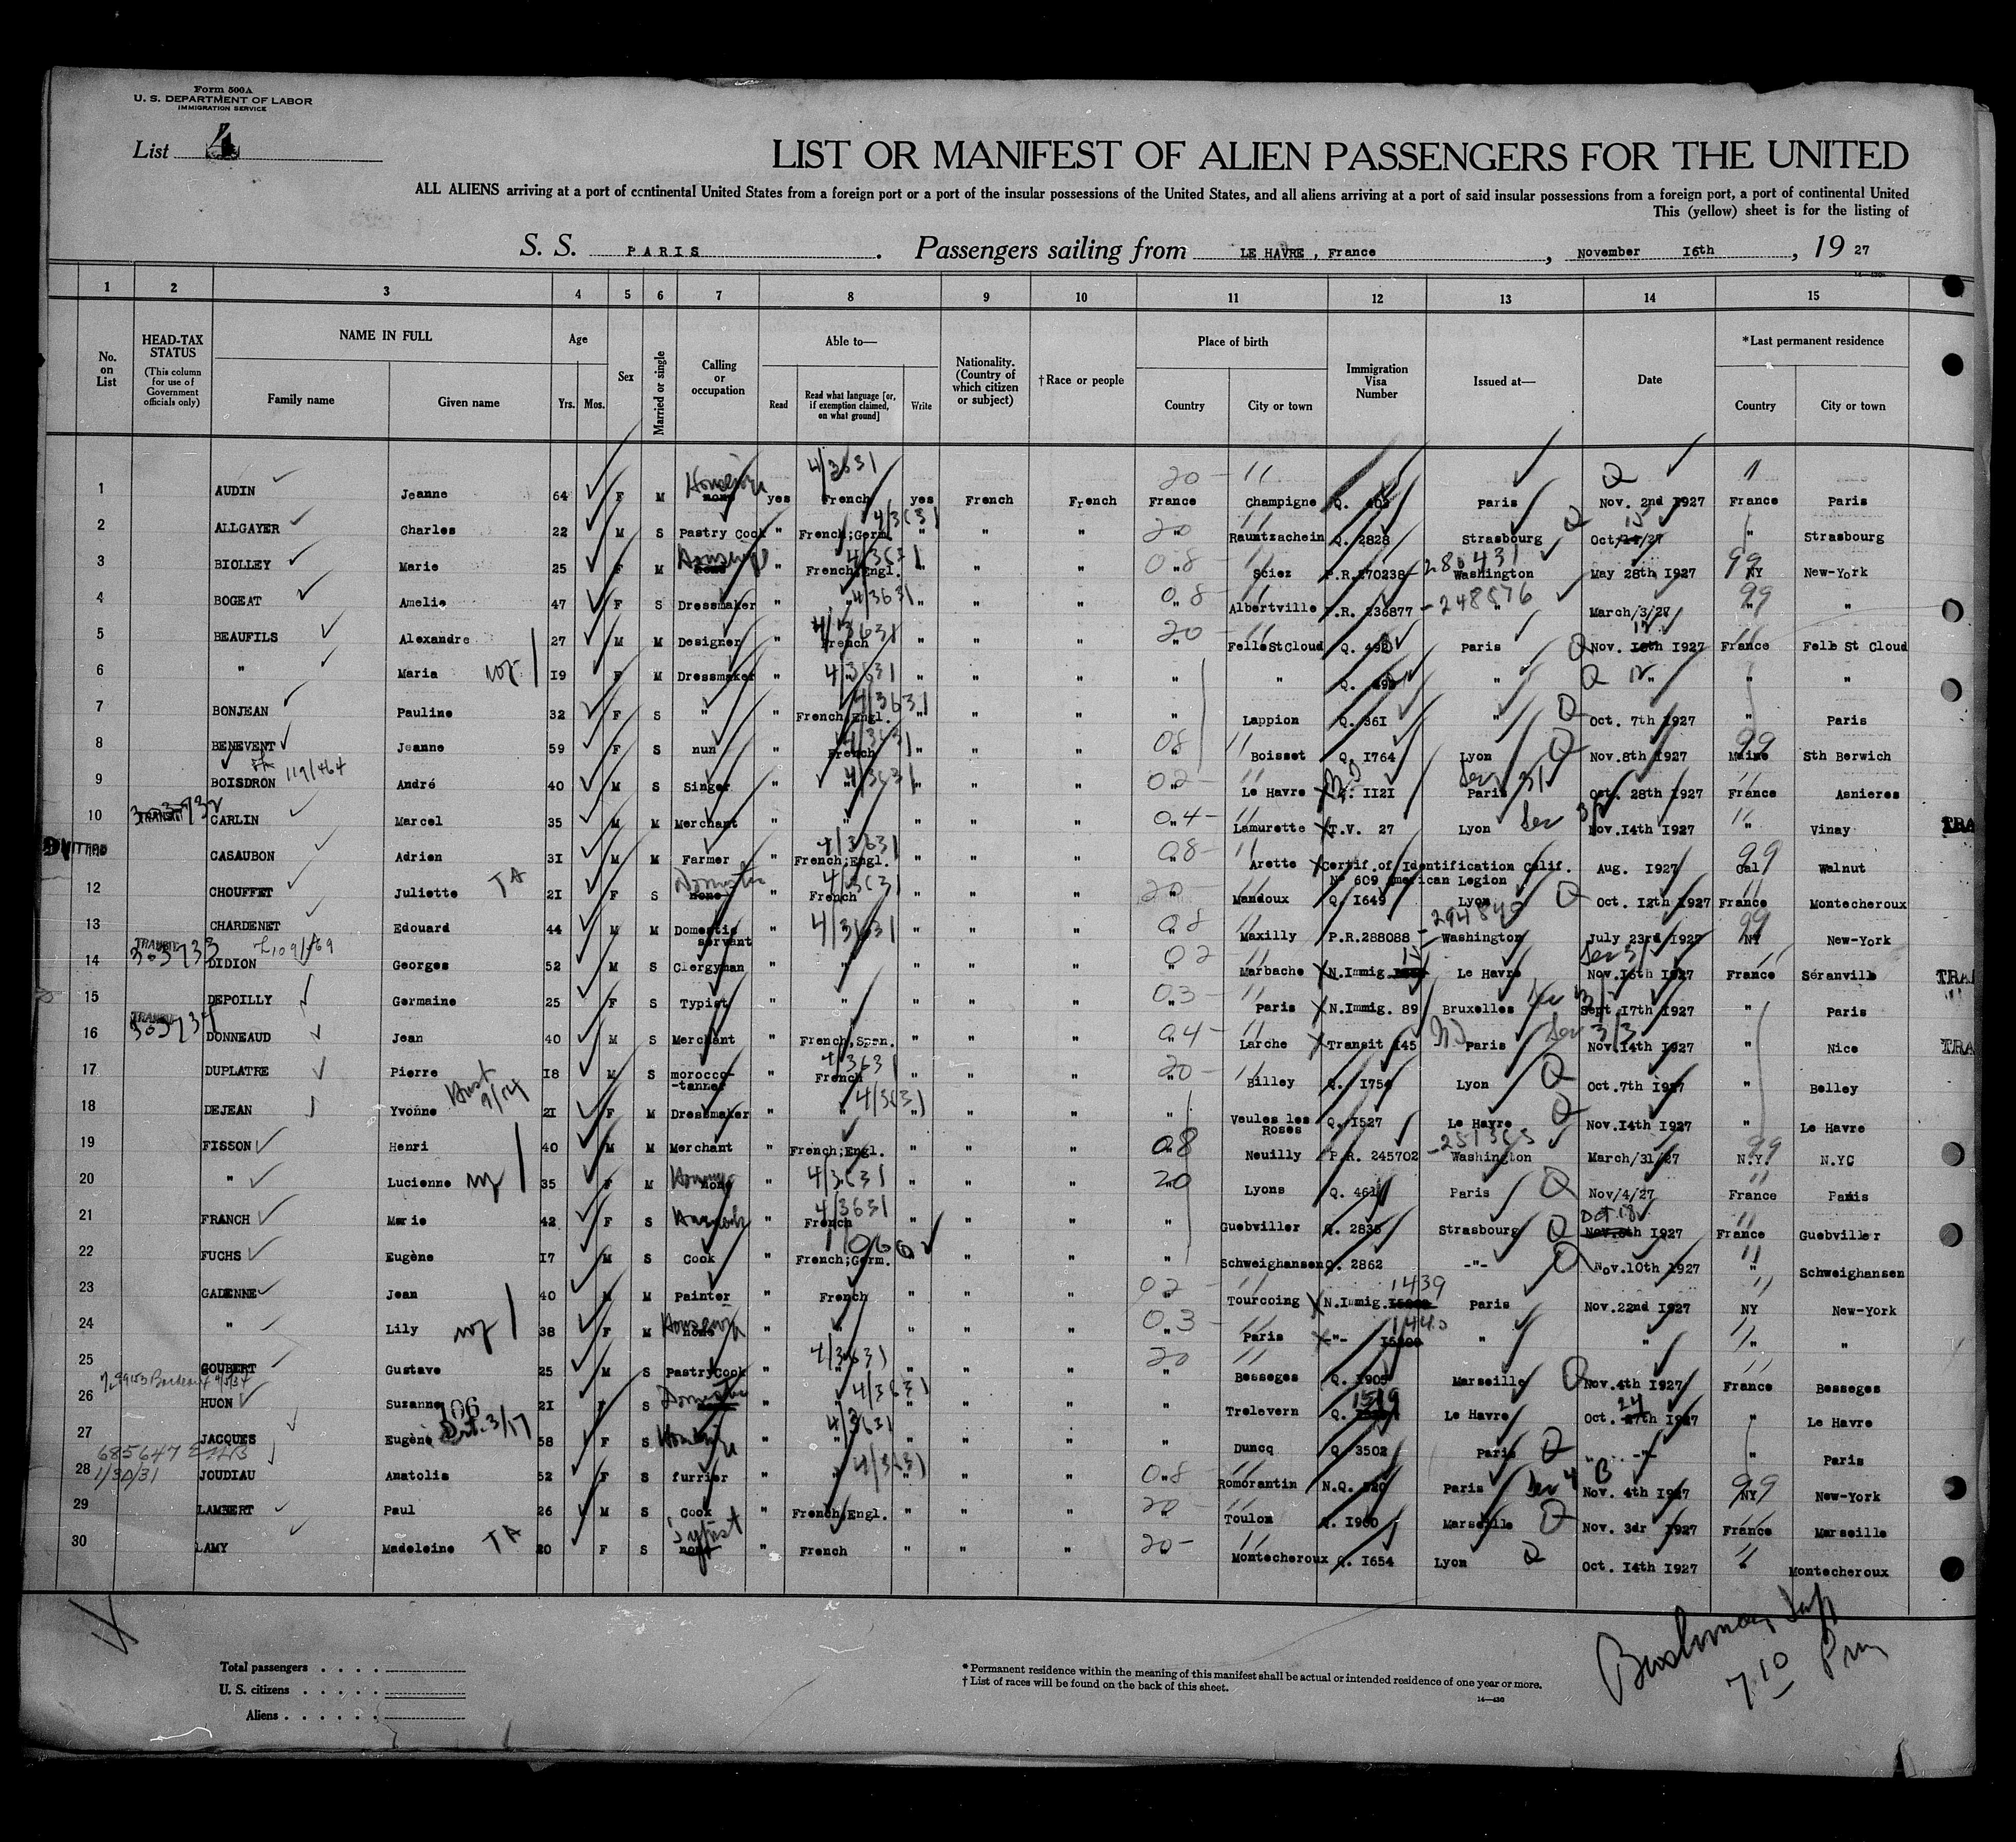 Form 500A
U. S. DEPARTMENT OF LABOR
IMMIGRATION SERVICE
List 4
LIST OR MANIFEST OF ALIEN PASSENGERS FOR THE UNITED
ALL ALIENS arriving at a port of continental United States from a foreign port or a port of the insular possessions of the United States, and all aliens arriving at a port of said insular possessions from a foreign port, a port of continental United
This (yellow) sheet is for the listing of
S. S. PARIS. Passengers sailing from LE HAVRE , France, November I6th, 19 27
1 2 3 4 5 6 7 8 9 10 11 12 13 14 15
No. on List
HEAD-TAX STATUS (This column for use of Government officials only)
NAME IN FULL Family name Given name
Age Yrs. Mos.
Sex
Married or single
Calling or occupation
Able to— Read Read what language [or, if exemption claimed, on what ground] Write
Nationality. (Country of which citizen or subject)
†Race or people
Place of birth Country City or town
Immigration Visa Number
Issued at—
Date
*Last permanent residence Country City or town
1 AUDIN Jeanne 64 F M none Housewife yes French 4/3631 yes French French France 20 Champigne Q. 402 Paris Nov. 2nd I927 France Paris
2 ALLGAYER Charles 22 M S Pastry Cook " French;Germ. " " " " 20 Rauntzachein Q. 2828 Strasbourg Oct/ /27 " Strasbourg
3 BIOLLEY Marie 25 F M " French;Engl. " " " " 08 Sciez P.R.270238 -280431 Washington May 28th I927 NY 99 New-York
4 BOGEAT Amelie 47 F S Dressmaker " " 4/3631 " " " " 08 Albertville P.R. 236877 -248576 " March/3/27 " 99 "
5 BEAUFILS Alexandre 27 M M Designer " French 4/3631 " " " " 20 FelleStCloud Q. 492 Paris Nov. I927 France Felle St Cloud
6 " Maria I9 F M Dressmaker " " 4/3631 " " " " " Q. " " " "
7 BONJEAN Pauline 32 F S " " French;Engl. 4/3631 " " " " Lappion Q. 36I " Oct. 7th I927 " Paris
8 BENEVENT Jeanne 59 F S nun " French 4/3631 " " " 08 Boisset Q. I764 Lyon Nov.8th I927 Maine 99 Sth Berwich
9 BOISDRON 119/464 André 40 M S Singer " " 4/3631 " " " " 02 Le Havre Q. II2I Paris Oct. 28th I927 France Asnieres
10 TRANSIT 303732 CARLIN Marcel 35 M M Merchant " " " " " " 04 Lamurette T.V. 27 Lyon Nov.I4th I927 " Vinay TRA
CASAUBON Adrien 3I M M Farmer " French;Engl. 4/3631 " " " " 08 Arette Certif.of Identification Calif. Aug. I927 Cal 99 Walnut
N° 609 American Legion
12 CHOUFFET Juliette TA 2I F S none " French 4/3631 " " " " 20 Mandoux Q. I649 Lyon Oct. I2th I927 France Montecheroux
13 CHARDENET Edouard 44 M M Domestic servant " 4/3631 " " " " 08 Maxilly P.R.288088 Washington July 23rd I927 NY 99 New-York
14 TRANSIT 303733 DIDION Georges 52 M S Clergyman " " " " " " 02 Marbache N.Immig. Le Havre Nov.I6th I927 France Séranville TRA
15 DEPOILLY Germaine 25 F S Typist " " " " " " 03 Paris N.Immig. 89 Bruxelles Sept.I7th I927 " Paris
16 TRANSIT DONNEAUD Jean 40 M S Merchant " French,Span. " " " " 04 Larche Transit I45 Paris Nov.I4th I927 " Nice TRA
17 DUPLATRE Pierre I8 M S morocco-tanner " French 4/3631 " " " " 20 Billey Q. I754 Lyon Oct.7th I927 " Belley
18 DEJEAN Yvonne 2I F M Dressmaker " " 4/3631 " " " " Veules les Roses Q. I527 Le Havre Nov.I4th I927 " Le Havre
19 FISSON Henri 40 M M Merchant " French;Engl. " " " 08 Neuilly P.R. 245702 Washington March/3I/27 N.Y. 99 N.YC
20 " Lucienne 35 F M none " 4/3631 " " " 20 Lyons Q. 461 Paris Nov/4/27 France Paris
21 FRANCH Marie 42 F S " French 4/3631 " " " " Guebviller Q. 2835 Strasbourg Oct 18 Nov.8th I927 France Guebviller
22 FUCHS Eugène I7 M S Cook " French;Germ. " " " " Schweighansen Q. 2862 -"- Nov.I0th I927 " Schweighansen
23 GADENNE Jean 40 M M Painter " French " " " 02 Tourcoing N.Immig. 1439 Paris Nov.22nd I927 NY New-York
24 " Lily 38 F M none Housewife " " " " " 03 Paris -"- 1440 " " " "
25 GOUBERT Gustave 25 M S PastryCook " 4/3631 " " " " 20 Besseges Q. I905 Marseille Nov.4th I927 France Besseges
26 HUON Suzanne 2I F S " " 4/3631 " " " " Trelevern Q. 1519 Le Havre Oct. 24 I927 " Le Havre
27 JACQUES Eugène 58 F S " " 4/3631 " " " " Duncq Q. 3502 Paris " -"- " Paris
685647
1/30/31
28 JOUDIAU Anatolis 52 F S furrier " " 4/3631 " " " 08 Romorantin N.Q. 520 Paris Nov. 4th I927 NY 99 New-York
29 LAMBERT Paul 26 M S Cook " French,Engl. " " " " 20 Toulon Q. I960 Marseille Nov. 3dr I927 France Marseille
30 LAMY Madeleine TA 20 F S none Typist " French " " " " 20 Montecheroux Q. I654 Lyon Oct. I4th I927 " Montecheroux
Total passengers
U. S. citizens
Aliens
* Permanent residence within the meaning of this manifest shall be actual or intended residence of one year or more.
† List of races will be found on the back of this sheet.
7.10 Pm